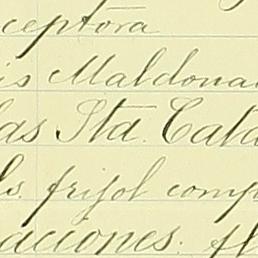 ceptora
is Maldona
as Sta. Cata
ls. frijol comp
aciones. fl